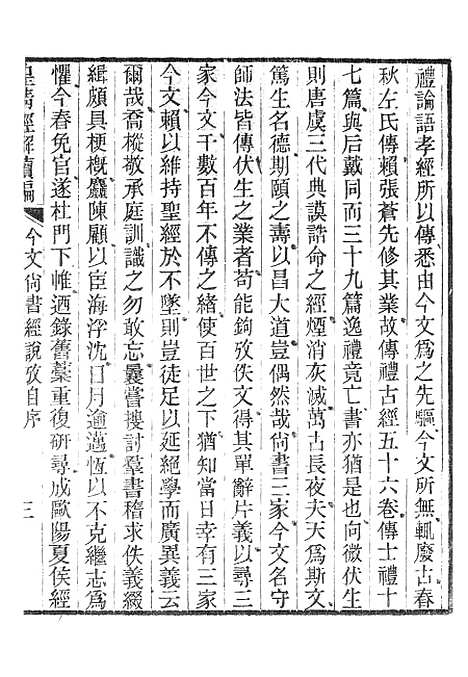 禮論語孝經所以傳悉由今文爲之先驅今文所無輒廢古春
秋左氏傳賴張蒼先修其業故傳禮古經五十六卷傳士禮十
七篇與后戴同而三十九篇逸禮竟亡書亦猶是也向微伏生
則唐虞三代典謨誥命之經煙消灰滅萬古長夜夫天爲斯文
篤生名德期頤之壽以昌大道豈偶然哉尚書三家今文名守
師法皆傳伏生之業者苟能鉤攷佚文得其單辭片義以尋三
家今文千數百年不傳之緒使百世之下猶知當日幸有三家
今文賴以維持聖經於不墜則豈徒足以延絕學而廣異義云
爾哉喬樅敬承庭訓識之勿敢忘曩嘗搜討羣書稽求佚義綴
緝頗具梗概麤陳顧以臣海浮沈日月逾邁恆以不克繼志爲
懼今春免官遂杜門下帷迺錄舊藁重復研尋成歐陽夏侯經
皇淸經解續編 今文尚書經說攷自序 三